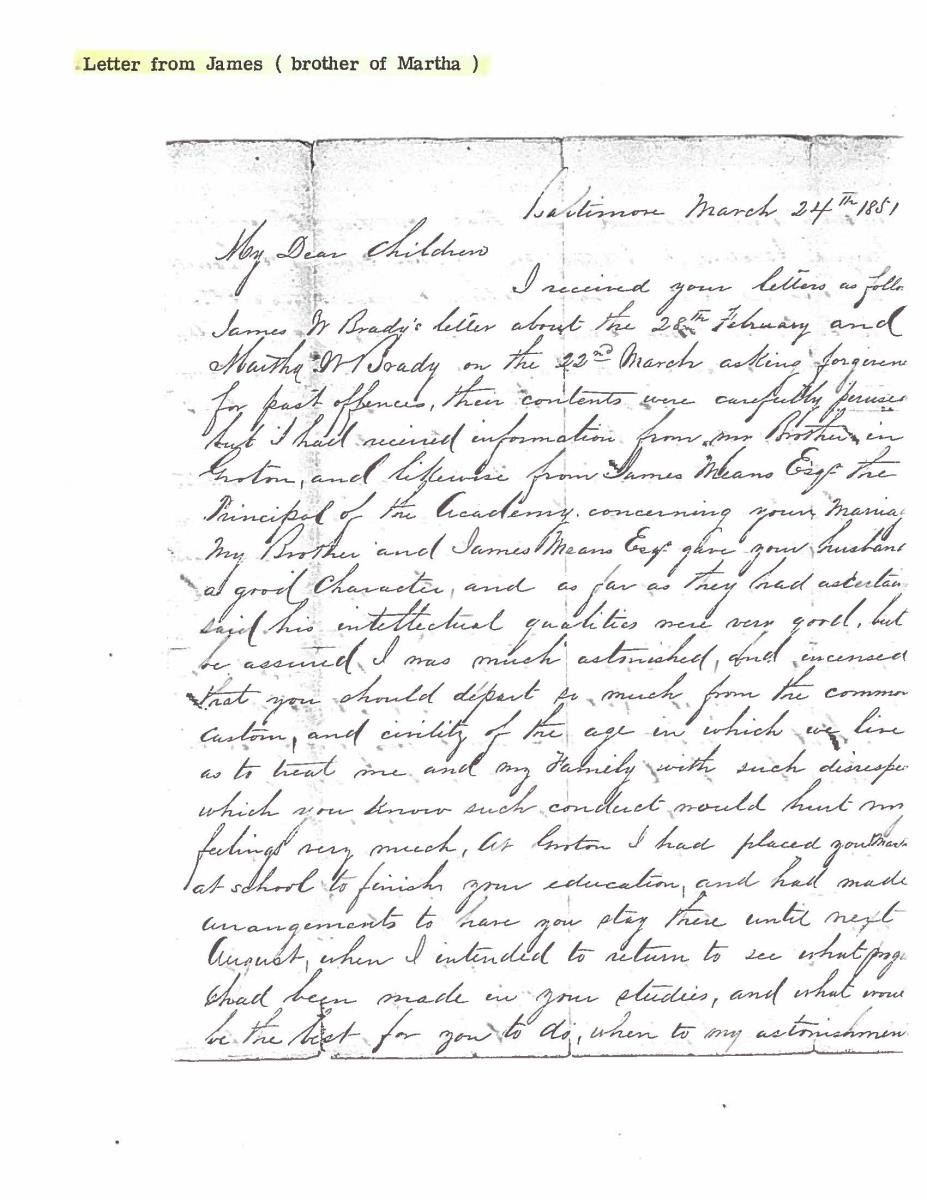 Letter from James ( brother of Martha )
Baltimore March 24th 1851
My Dear Children
I received your letters as follo
James W Brady's letter about the 28th February and
Martha W Brady on the 22nd March asking forgiven
for past offences, their contents were carefully peruse
but I had received information from my Brother in
Groton, and likewise from James Means Esqr the
Principal of the Academy. concerning your Marria
My Brother and James Means Esqr gave your husban
a good Character, and as far as they had ascertain
said his intellectual qualities were very good, but
be assured I was much astonished, and incensed
that you should depart so much from the common
custom, and civility of the age in which we live
as to treat me and my Family with such disrespe
which you know such conduct would hurt my
feelings very much, At Groton I had placed you
at school to finish your education, and had made
arrangements to have you stay there until next
August, when I intended to return to see what prog
had been made in your studies, and what wou
be the best for you to do, when to my astonishmen